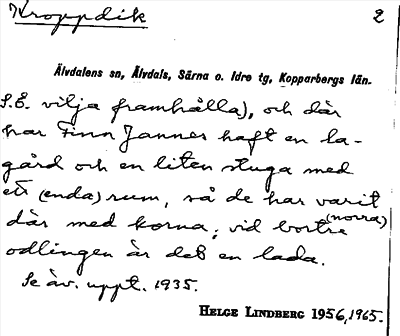 Kroppdik 2
Älvdalens sn, Älvdals, Särna o. Idre tg, Kopparbergs län.
S.E. vilja framhålla), och där
har Finn Jannes haft en la-
gård och en liten stuga med
ett (enda) rum, så de har varit
där med korna; vid bortre (norra)
odlingen är det en lada.
Se äv. uppt. 1935.
HELGE LINDBERG 1956, 1965.